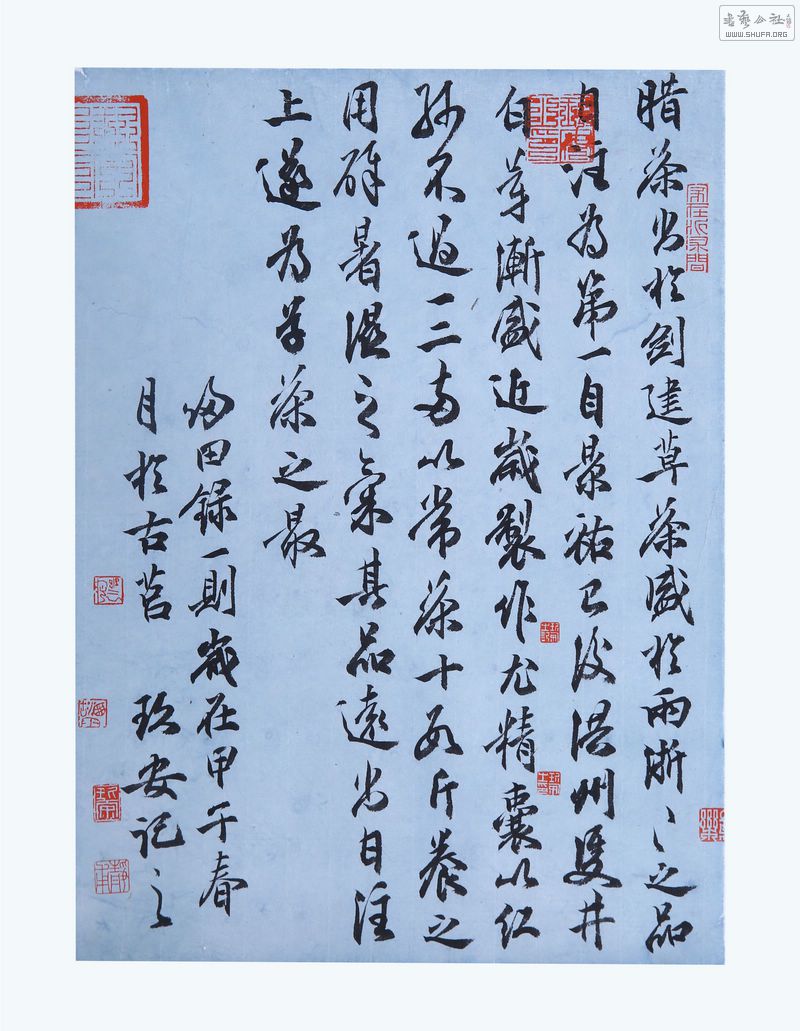 腊茶出於劍建草茶盛於兩浙〻之品
日注為第一自景祐已後洪州雙井
白芽漸盛近歲製作尤精囊以紅
紗不過一二兩以常茶十數斤養之
用辟暑濕之氣其品遠出日注
上遂為草茶之最
歸田錄一則歲在甲午春
月於古莒 玖安記之
書藝公社
WWW.SHUFA.ORG